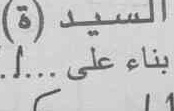 السيد (ة)
بناء على ....ا.